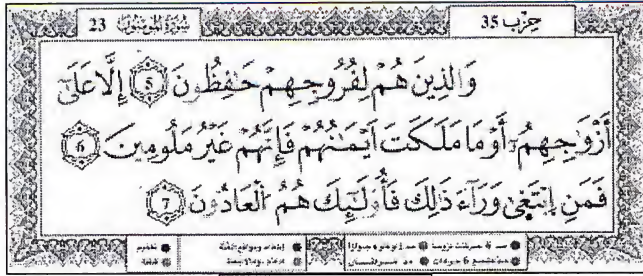 سُورَةُ المُومِنُون 23
حِزْب 35
وَالذِينَ هُمْ لِفُرُوجِهِمْ حَٰفِظُونَ 5 إِلَّا عَلَىٰٓ
أَزْوَٰجِهِمُۥٓ أَوْ مَا مَلَكَتَ اَيْمَٰنُهُمْ فَإِنَّهُمْ غَيْرُ مَلُومِينَ 6
فَمَنِ اِبْتَغ۪ىٰ وَرَآءَ ذَٰلِكَ فَأُوْلَٰٓئِكَ هُمُ الْعَادُونَ 7